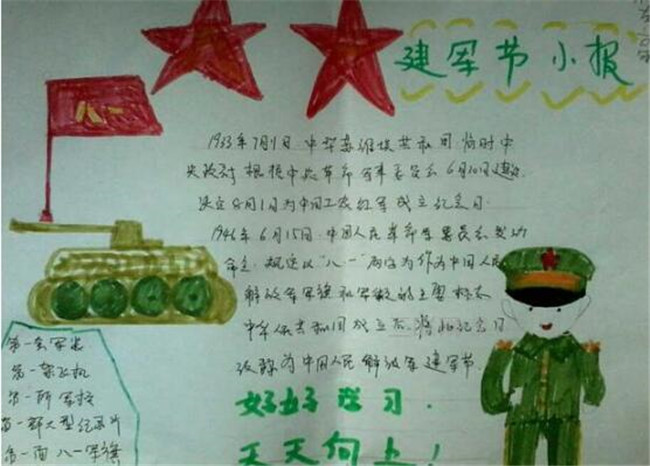 建军节小报
八一
1933年7月1日,中华苏维埃共和国临时中
央政府根据中央革命军事委员会6月30日建议,
决定8月1日为中国工农红军成立纪念日.
1946年6月15日,中国人民革命军事委员会发动
命令,规定以"八.一"两字为作为中国人民
解放军军旗和军徽的主要标志
中华人共和国成立后,将此纪念日
改称为中国人民解放军建军节.
第一套军装
第一架飞机
第一所军校
第一部大型纪录片
第一面八一军旗
好好学习.
天天向上!